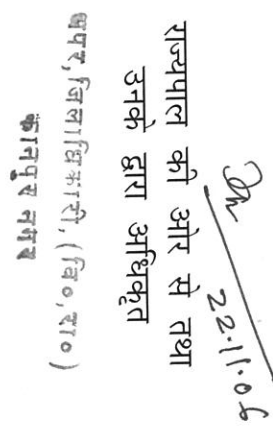 22.11.06
राज्यपाल की ओर से तथा
उनके द्वारा अधिकृत
अपर, जिलाधिकारी, (वि०, रा०)
कानपुर नगर